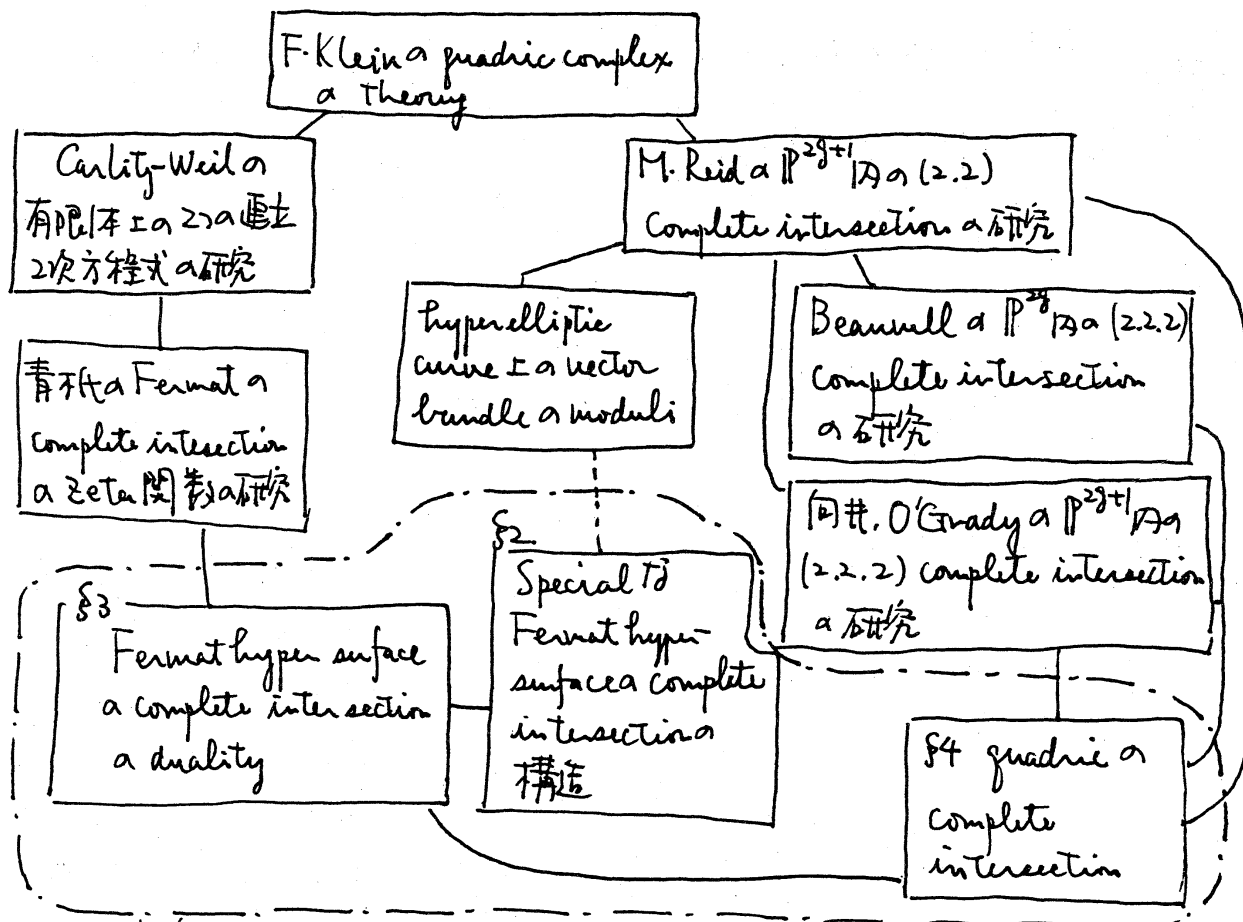 F. Klein の quadric complex
の Theory
Carlitz-Weil の
有限体上の2つの連立
2次方程式の研究
M. Reid の ℙ²ᵍ⁺¹ 内の (2.2)
Complete intersection の研究
hyperelliptic
curve 上の vector
bundle の moduli
Beauvill の ℙ²ᵍ 内の (2.2.2)
complete intersection
の研究
青木氏の Fermat の
complete intesection
の Zeta 関数の研究
向井, O'Grady の ℙ²ᵍ⁺¹ 内の
(2.2.2) complete intersection
の研究
§2
Special な
Fermat hyper-
surface の complete
intersection の
構造
§3
Fermat hyper surface
の complete intersection
の duality
§4 quadric の
complete
intersection